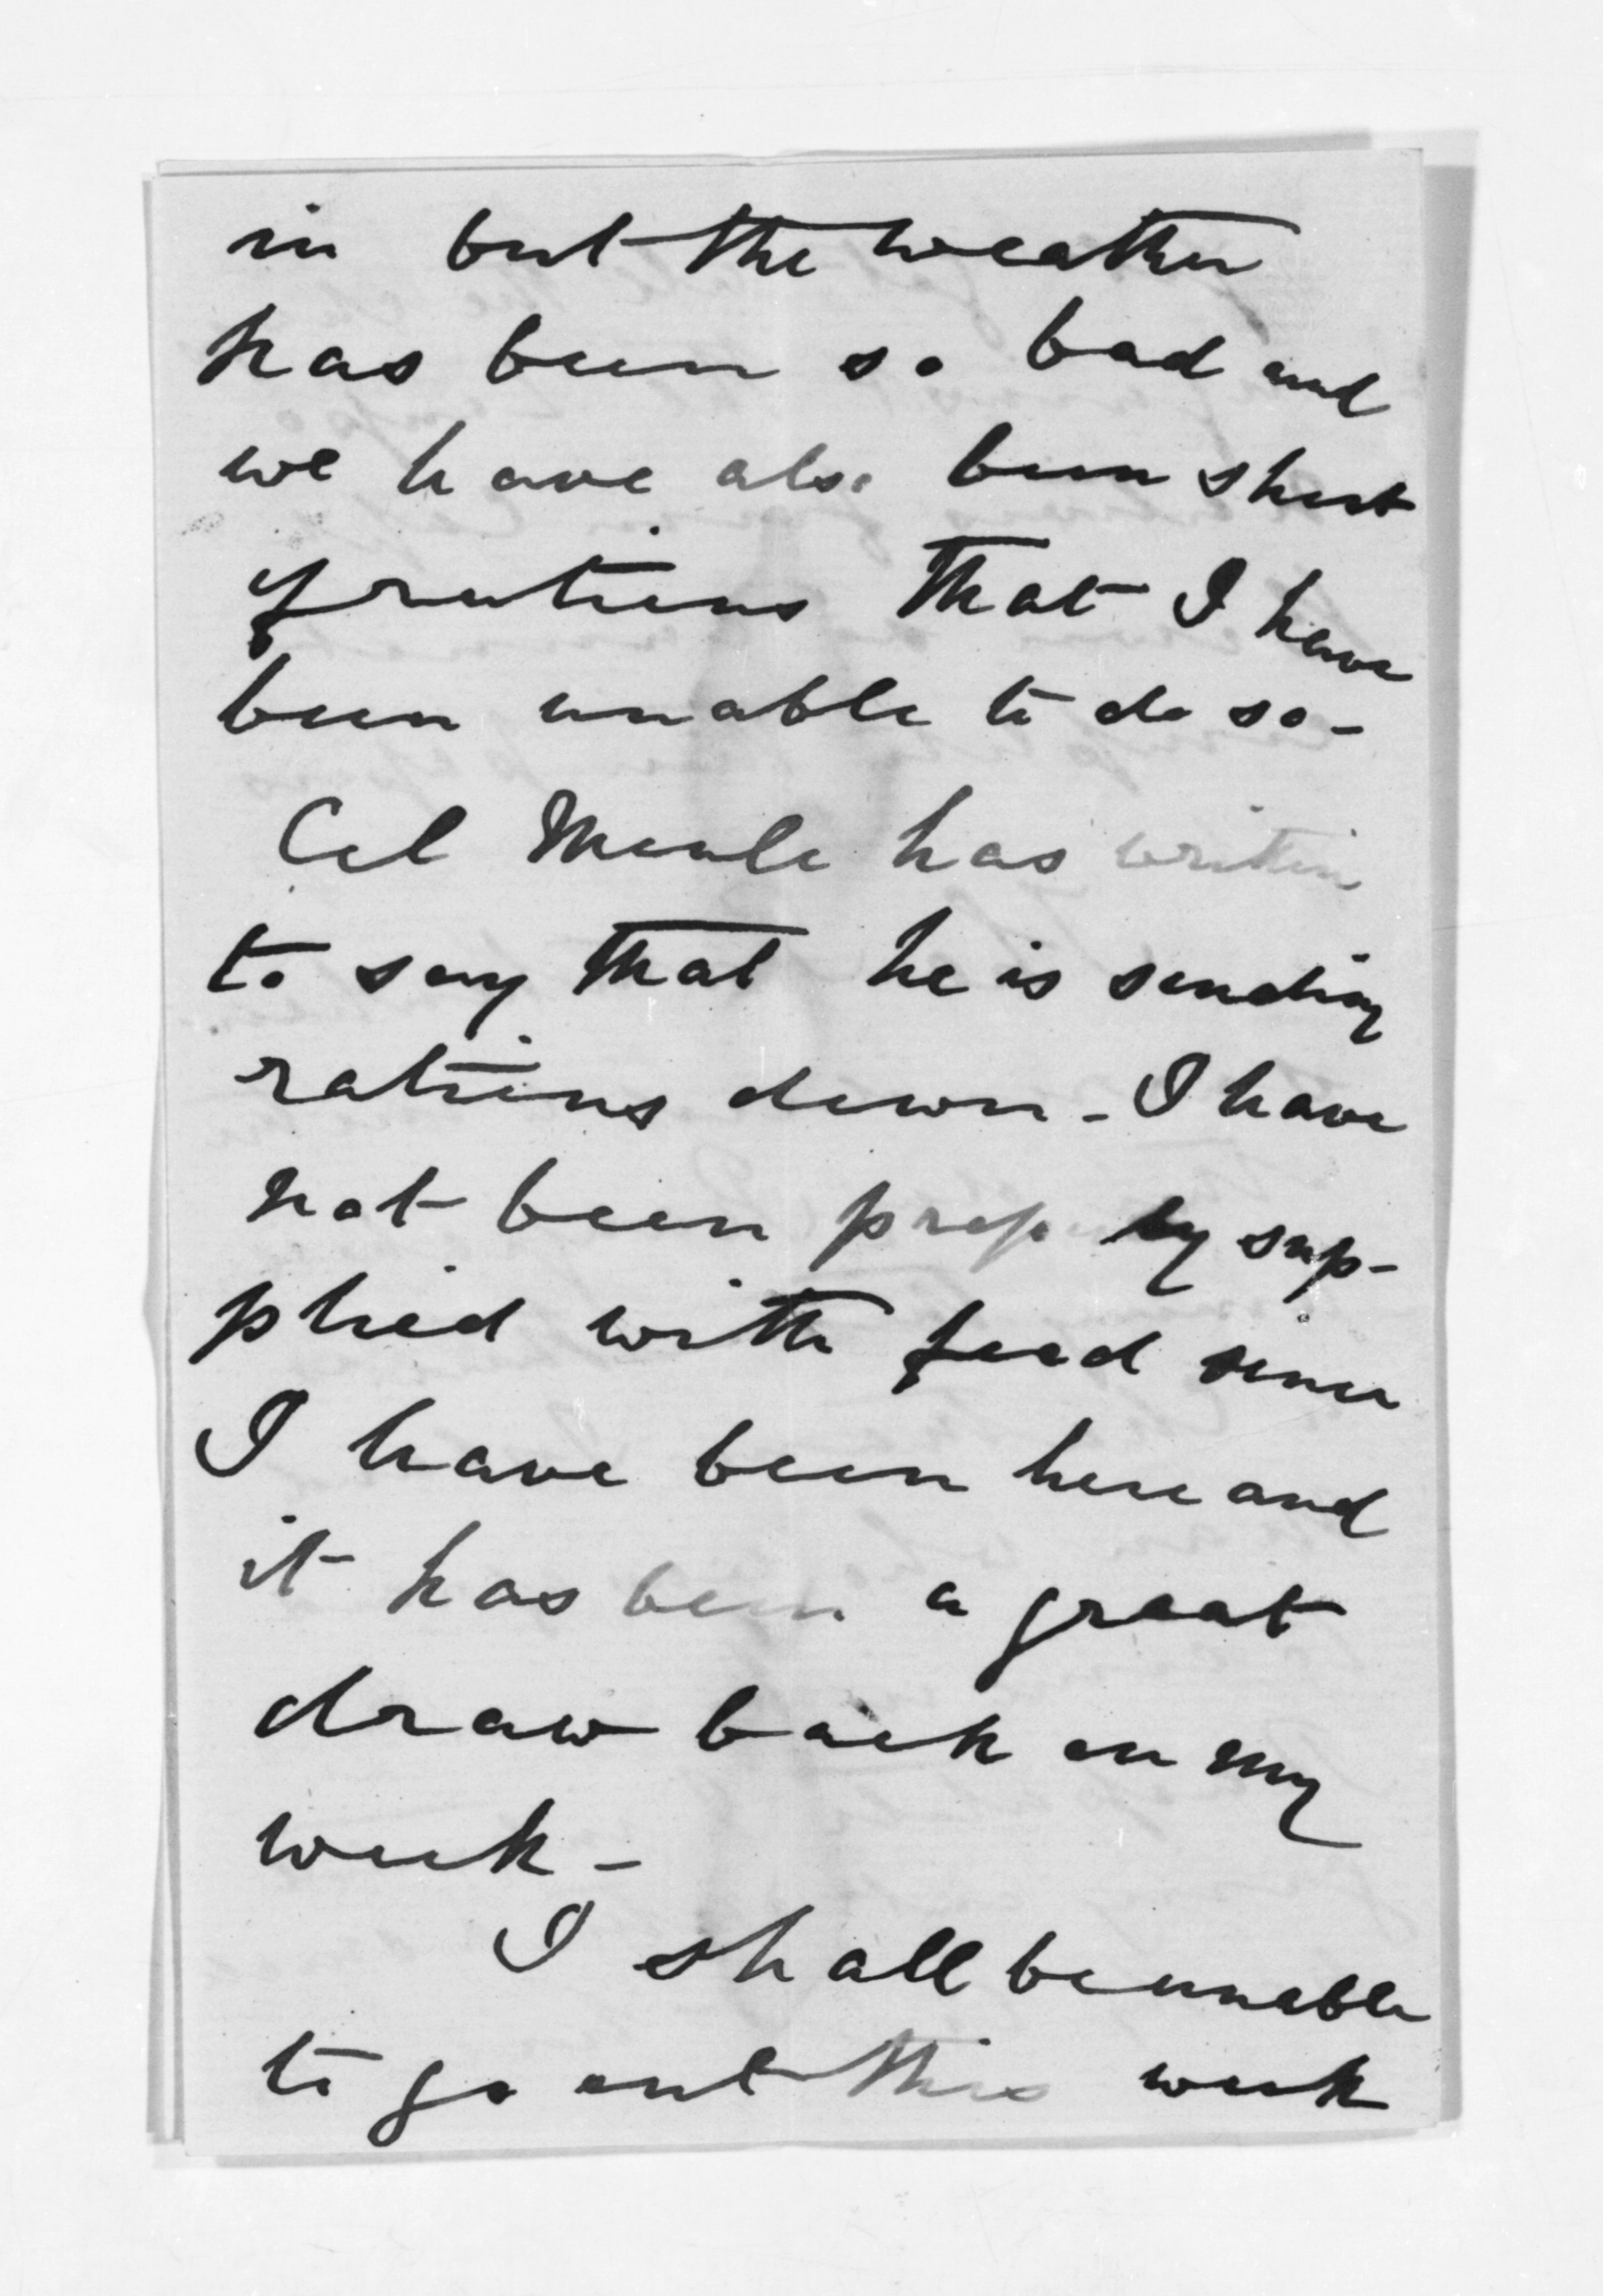 in but the weather
has been so bad and
we have also been short
of rations that I have
been unable to do so -
Col Moule has written
to say that he is sending
rations down - I have
not been properly sup-
plied with food since
I have been here and
it has been a great
draw back on my
work -
I shall be unable
to go out this week